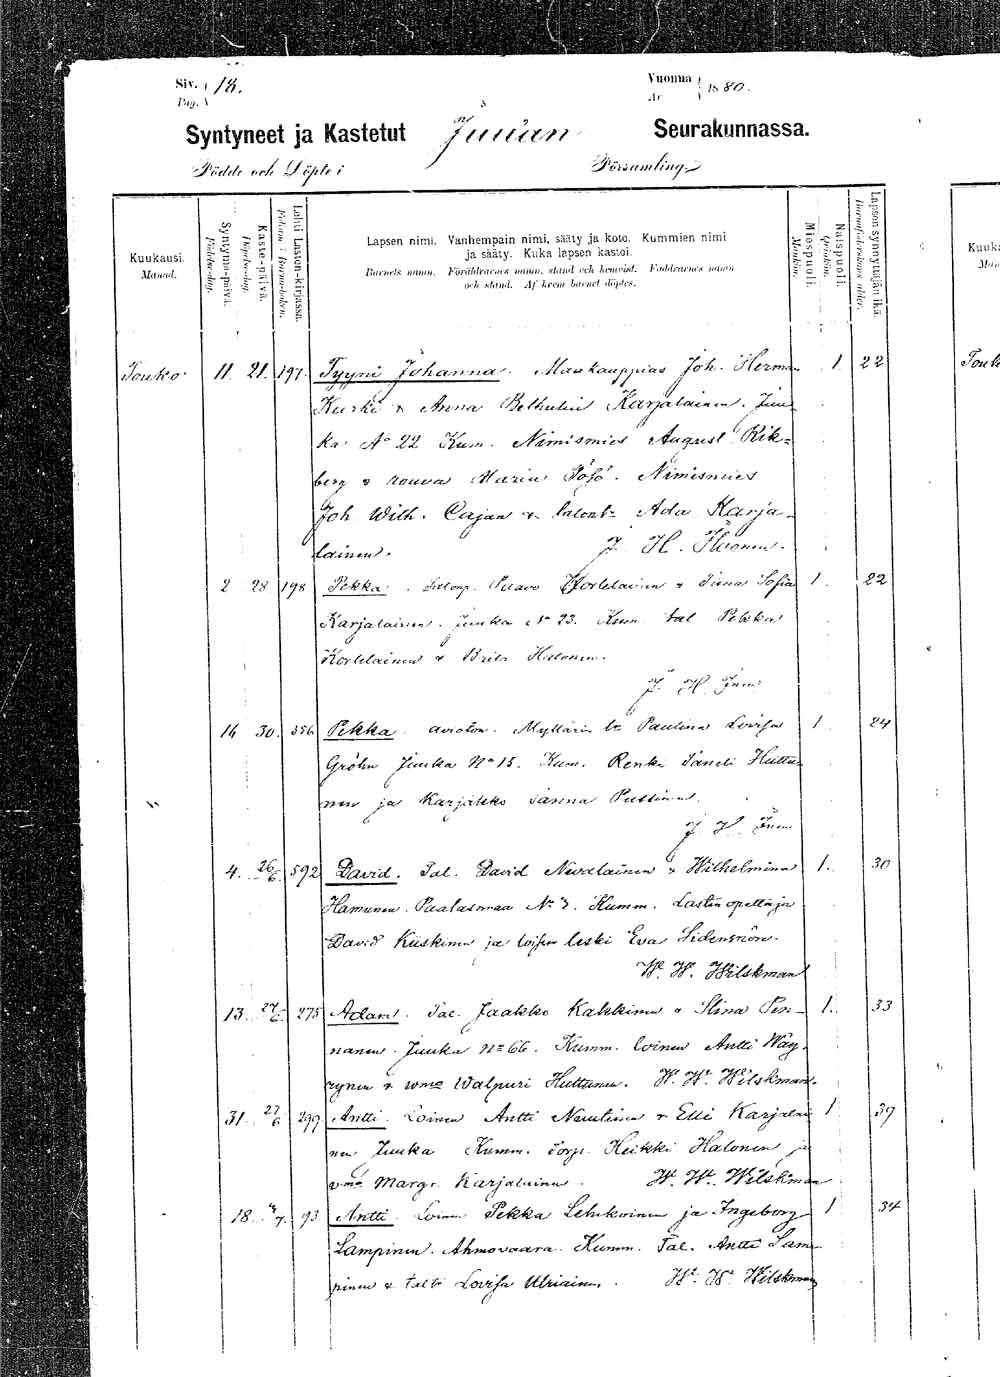 Siv. 18.
Pag.
Vuonna 1880.
År
Syntyneet ja Kastetut Juuan Seurakunnassa.
Födde och Döpte i Församling.
Kuukausi.
Månad.
Syntymä-päivä.
Födelse-dag.
Kaste-päivä.
Döpelse-dag.
Lehti Lasten-kirjassa.
Folium i Barna-boken.
Lapsen nimi. Vanhempain nimi, sääty ja koto. Kummien nimi
ja sääty. Kuka lapsen kastoi.
Barnets namn. Föräldrarnes namn, stånd och hemvist. Faddrarnes namn
och stånd. Af hvem barnet döptes.
Miespuoli.
Mankön.
Naispuoli.
Qvinkön.
Lapsen synnyttäjän ikä.
Barnaföderskans ålder.
Touko 11. 21. 197. Tyyni Johanna. Maakauppias Joh. Herman 1. 22
Kurki & Anna Bethulin Karjalainen. Juu-
ka No 22 Kum. Nimismies August Rik-
berg & rouva Maria Nimismies
Joh Wilh. Cajan & Ada Karja-
lainen. J. H.
2 28 198 Pekka. Paavo Kortelainen & Sofia 1. 22
Karjalainen. Juuka No 23. Kum. tal Pekka
Kortelainen & Brita Halonen.
J. H.
16 30. 356 Pekka. avioton. Myllärin Paulina Lovisa 1 24
Gröhn Juuka No 15. Kum. Renki Taneli Huttu-
nen ja Karjakko Sanna
J H
4. 26/6 592 David. Tal. David Nevalainen & Wilhelmina 1. 30
Hamunen. Paalasmaa No 3. Kumm. Lasten opettaja
David Kiiskinen ja loisen leski Eva
W. W. Wilskman
13. 27/6. 275 Adam. Tal. Jaakko Kakkinen & Stina Pen- 1. 33
nanen. Juuka No 66. Kumm. loinen Antti Wäy-
rynen & vmo Walpuri Huttunen. W. W. Wilskman.
31. 27/6 299 Antti. Loinen Antti Nuutinen & Elli Karjalai 1 39
nen Juuka Kumm. Torp. Heikki Halonen ja
vmo Margr. Karjalainen. W. W. Wilskman
18. 4/7. 93 Antti. Loinen Pekka Lehikoinen ja Ingeborg 1 34
Lampinen. Ahmovaara. Kumm. Tal. Antti Lam-
pinen & Lovisa W. W. Wilskman
Kuuka
Må
Touk